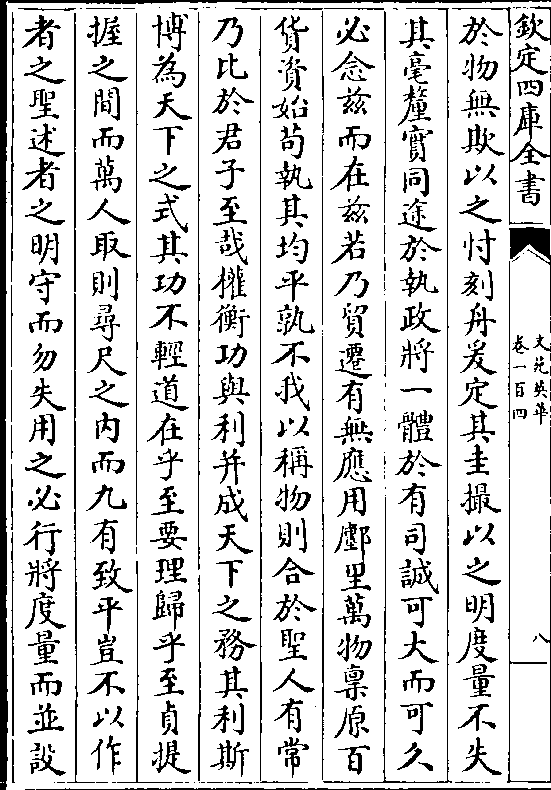 欽定四庫全書
文苑英華
卷一百四
八
於物無欺以之忖刻舟爰定其圭撮以之明度量不失
其毫釐實同途於執政將一體於有司誠可大而可久
必念兹而在兹若乃貿遷有無應用鄽里萬物稟原百
貨資始苟執其均平孰不我以稱物則合於聖人有常
乃比於君子至哉權衡功與利并成天下之務其利斯
博為天下之式其功不輕道在乎至要理歸乎至貞提
握之間而萬人取則尋尺之内而九有致平豈不以作
者之聖述者之明守而勿失用之必行將度量而並設